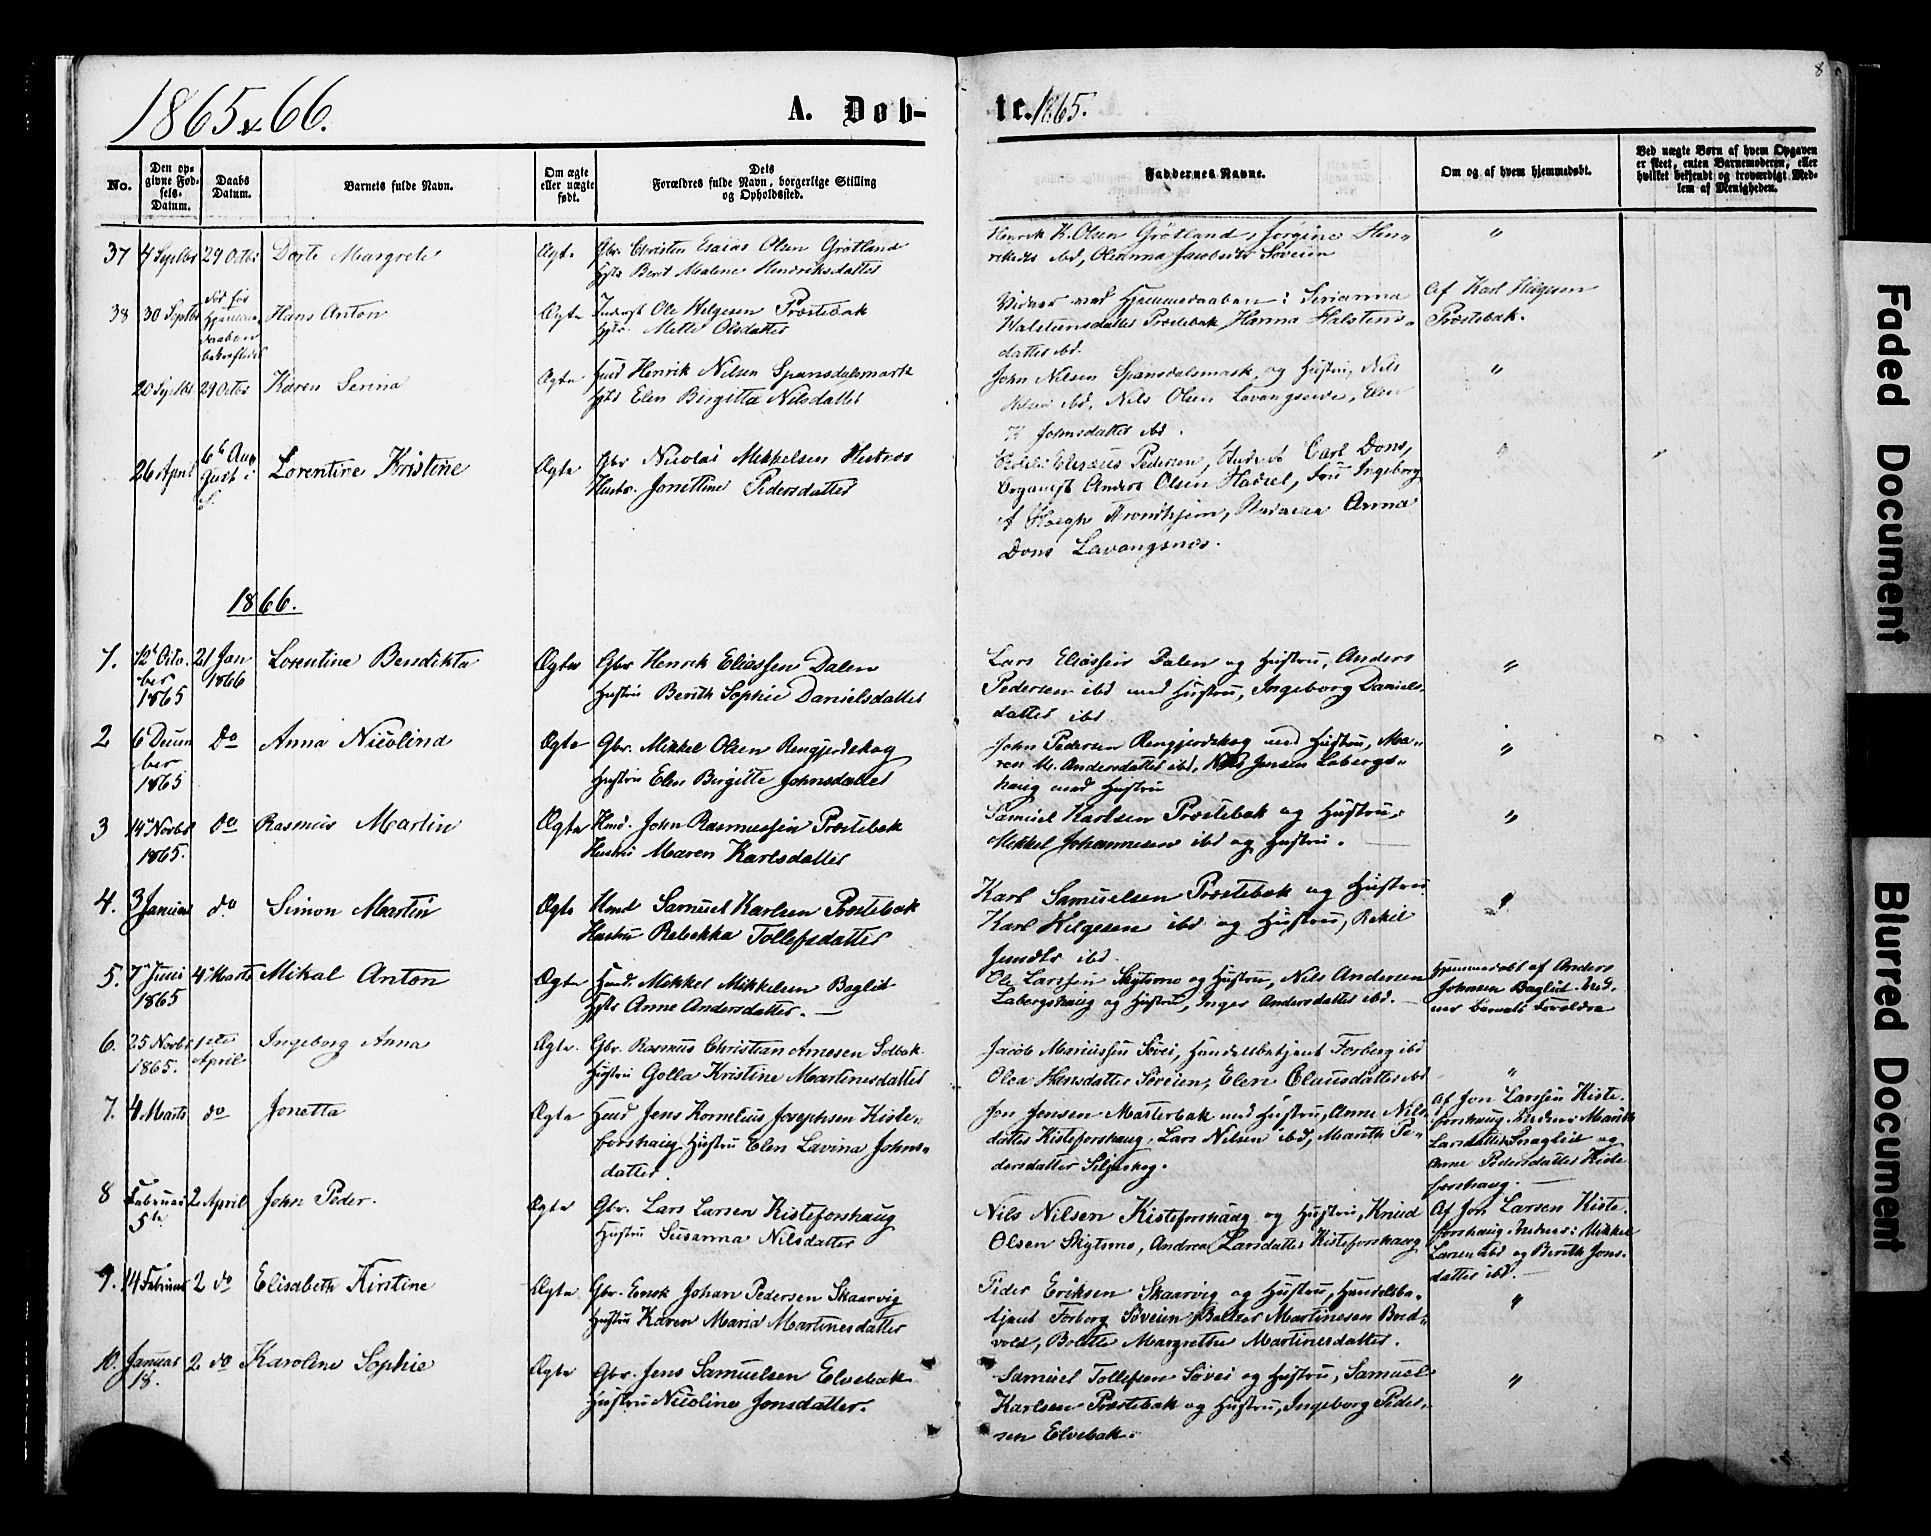 1865 & 66.
A. Døb-
te. 1865.
8
No.
Den op-
givne Fød-
sels-
Datum.
Daabs
Datum.
Barnets fulde Navn.
Om ægte
eller uægte
født.
Dets
Forældres fulde Navn, borgerlige Stilling
og Opholdssted.
Faddernes Navne.
Om og af hvem hjemmedøbt.
Ved uægte Børn af hvem Opgaven
er skeet, enten Barnemoderen, eller
hvilket bekjendt og troværdigt Med-
lem af Menigheden.
37 4 Septbr 29 Octbr Dorte Margrete Ægte Gbr. Christen Esaias Olsen Grøtland
Hstr Berit Malene Hendriksdatter
Henrik K. Olsen Grøtland, Jorgine Hen-
riksdr ibd, Olerinna Jacobsdr Søveien
"
38 30 Septbr Hans Anton Ægte Indst Ole Helgesen Præstebak
Hstr. Mette Olsdatter
Vidner ved Hjemmedaaben: Serianna
Halstensdatter Præstebak Hanna Halstens-
datter ibd.
Af Karl Helgesen
Præstebak.
20 Septbr 29 Octbr Karen Serina Ægte Huus Henrik Nilsen Spansdalsmark
Hstr Elen Birgitta Nilsdatter
John Nilsen Spansdalsmark og Hustru, Nils
Nilsen ibd, Nils Olsen Lavangseide, Elen
K Johnsdatter ibd.
"
26 April 6te Au-
gust i
Lorentine Kristine Ægte Gbr Nicolai Mikkelsen Hestnes
Hustr. Jonettine Pedersdatter
Elisæus Pedersen, Carl Dons,
Organist Anders Olsen Fru Ingeborg
Trondhjem, Anna
Dons Lavangsnes.
1866.
1. 12te Octo-
ber
1865
21 Jan
1866
Lorentine Bendikta Ægte Gbr Henrik Eliassen Dalen
Hustru Berith Sophie Danielsdatter
Lars Eliassen Dalen og Hustru, Anders
Pedersen ibd med Hustru, Ingeborg Daniels-
datter ibd.
"
2 6 Decem
ber
1865
do Anna Nicolina Ægte Gbr. Mikkel Olsen Rengjerdskog
Hustru Elen Birgitte Johnsdatter
John Pedersen Rengjerdskog med Hustru, Ma-
ren M. Andersdatter ibd, Nils Jensen Labergs-
haug med Hustru
"
3 14 Novbr
1865.
do Rasmus Martin Ægte Huusmd. John Rasmussen Præstebak
Hustru Maren Karlsdatter
Samuel Karlsen Præstebak og Hustru,
Mikkel Johannesen ibd og Hustru.
"
4. 3
Januar
do Simon Martin Ægte Hmd Samuel Karlsen Præstebak
Hustru Rebekka Tollefsdatter
Karl Samuelsen Præstebak og Hustru
Karl Helgesen ibd og Hustru, Rakel
ibd.
"
5. 7 Juni
1865
4 Marts Mikal Anton Ægte Huusd. Mikkel Mikkelsen Baglid
Hstr Anne Andersdatter.
Ole Larssen Skytsmo og Hustru, Nils Andersen
Labergshaug og Hustru, Inger Andersdatter ibd.
Hjemmedøbt af Anders
Johnsen Baglid. Vid-
ner Barnets Forældre
6. 25 Novbr
1865.
1ste
April
Ingeborg Anna Ægte. Gbr. Rasmus Christian Arnesen Solbak
Hustru Golla Kristine Martinesdatter
Jacob Mariussen Søvei, Handelsbetjent Forberg ibd
Olea Hansdatter Søveien, Elen Clausdatter ibd
"
7. 4 Marts do Jonetta Ægte Huusd Jens Kornelius Josephsen Kiste-
forshaug Hustru Elen Lavina Johns-
datter.
Jon Jensen Masterbak med Hustru, Anne Nils-
datter Kisteforshaug, Lars Nilsen ibd, Marith Pe-
dersdatter Siljeskog.
Af Jon Larssen Kiste-
forshaug. Vidner: Marith
Larsdatter og
Anne Pedersdatter Kiste
forshaug.
8 Februar
5te
2 April John Peder. Ægte Gbr. Lars Larsen Kisteforshaug
Hustru Susanna Nilsdatter
Nils Nilsen Kisteforshaug og Hustru, Knud
Olsen Skytsmo, Andrea Larsdatter Kisteforshaug
Af Jon Larsen Kiste-
forshaug. Vidner: Mikkel
Larsen ibd og Berith Jons-
datter ibd.
9. 14 Februar 2 do Elisabeth Kirstine Ægte Gbr. Enok Johan Pedersen Skaarvig
Hustru Karen Maria Martinesdatter
Peder Eriksen Skaarvig og Hustru, Handelsbe-
tjent Forberg Søveien, Baltser Martinesen Bred-
vold, Bolette Margrethe Martinesdatter.
"
10. Januar
18.
2 do Karoline Sophie Ægte Gbr. Jens Samuelsen Elvebak
Hustru Nicoline Jonsdatter.
Samuel Tollefsen Søvei og Hustru, Samuel
Karlsen Præstebak og Hustru, Ingeborg Peder-
sen Elvebak.
"
Faded Document
Blurred Document